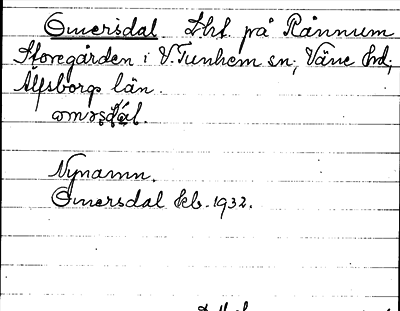 Omersdal Lht. på Rånnum
Storegården i V. Tunhem sn; Väne hd;
Älfsborgs län.
Nynamn.
Omersdal kb. 1932.